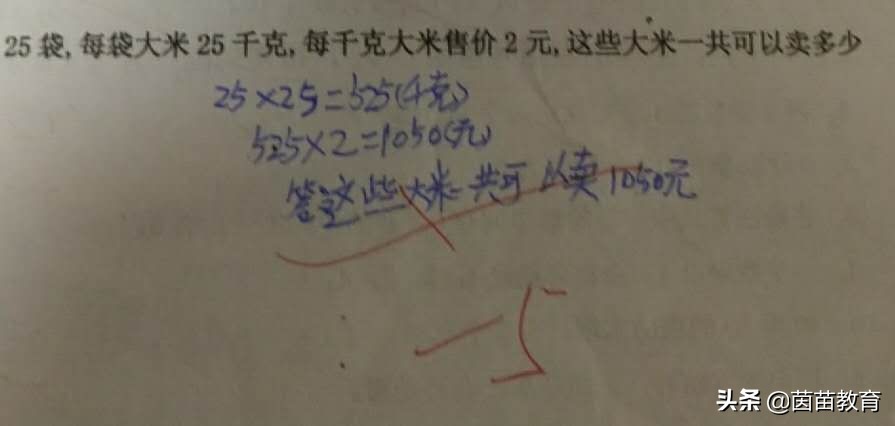 25 袋, 每袋大米 25 千克, 每千克大米售价 2 元, 这些大米一共可以卖多少
25×25=525(千克)
525×2=1050(元)
答:这些大米一共可以卖1050元
-5
头条 @茵苗教育